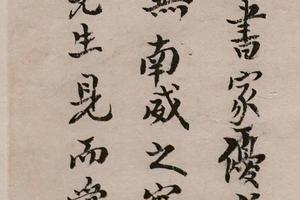 書家優
無南威之容
先生見而